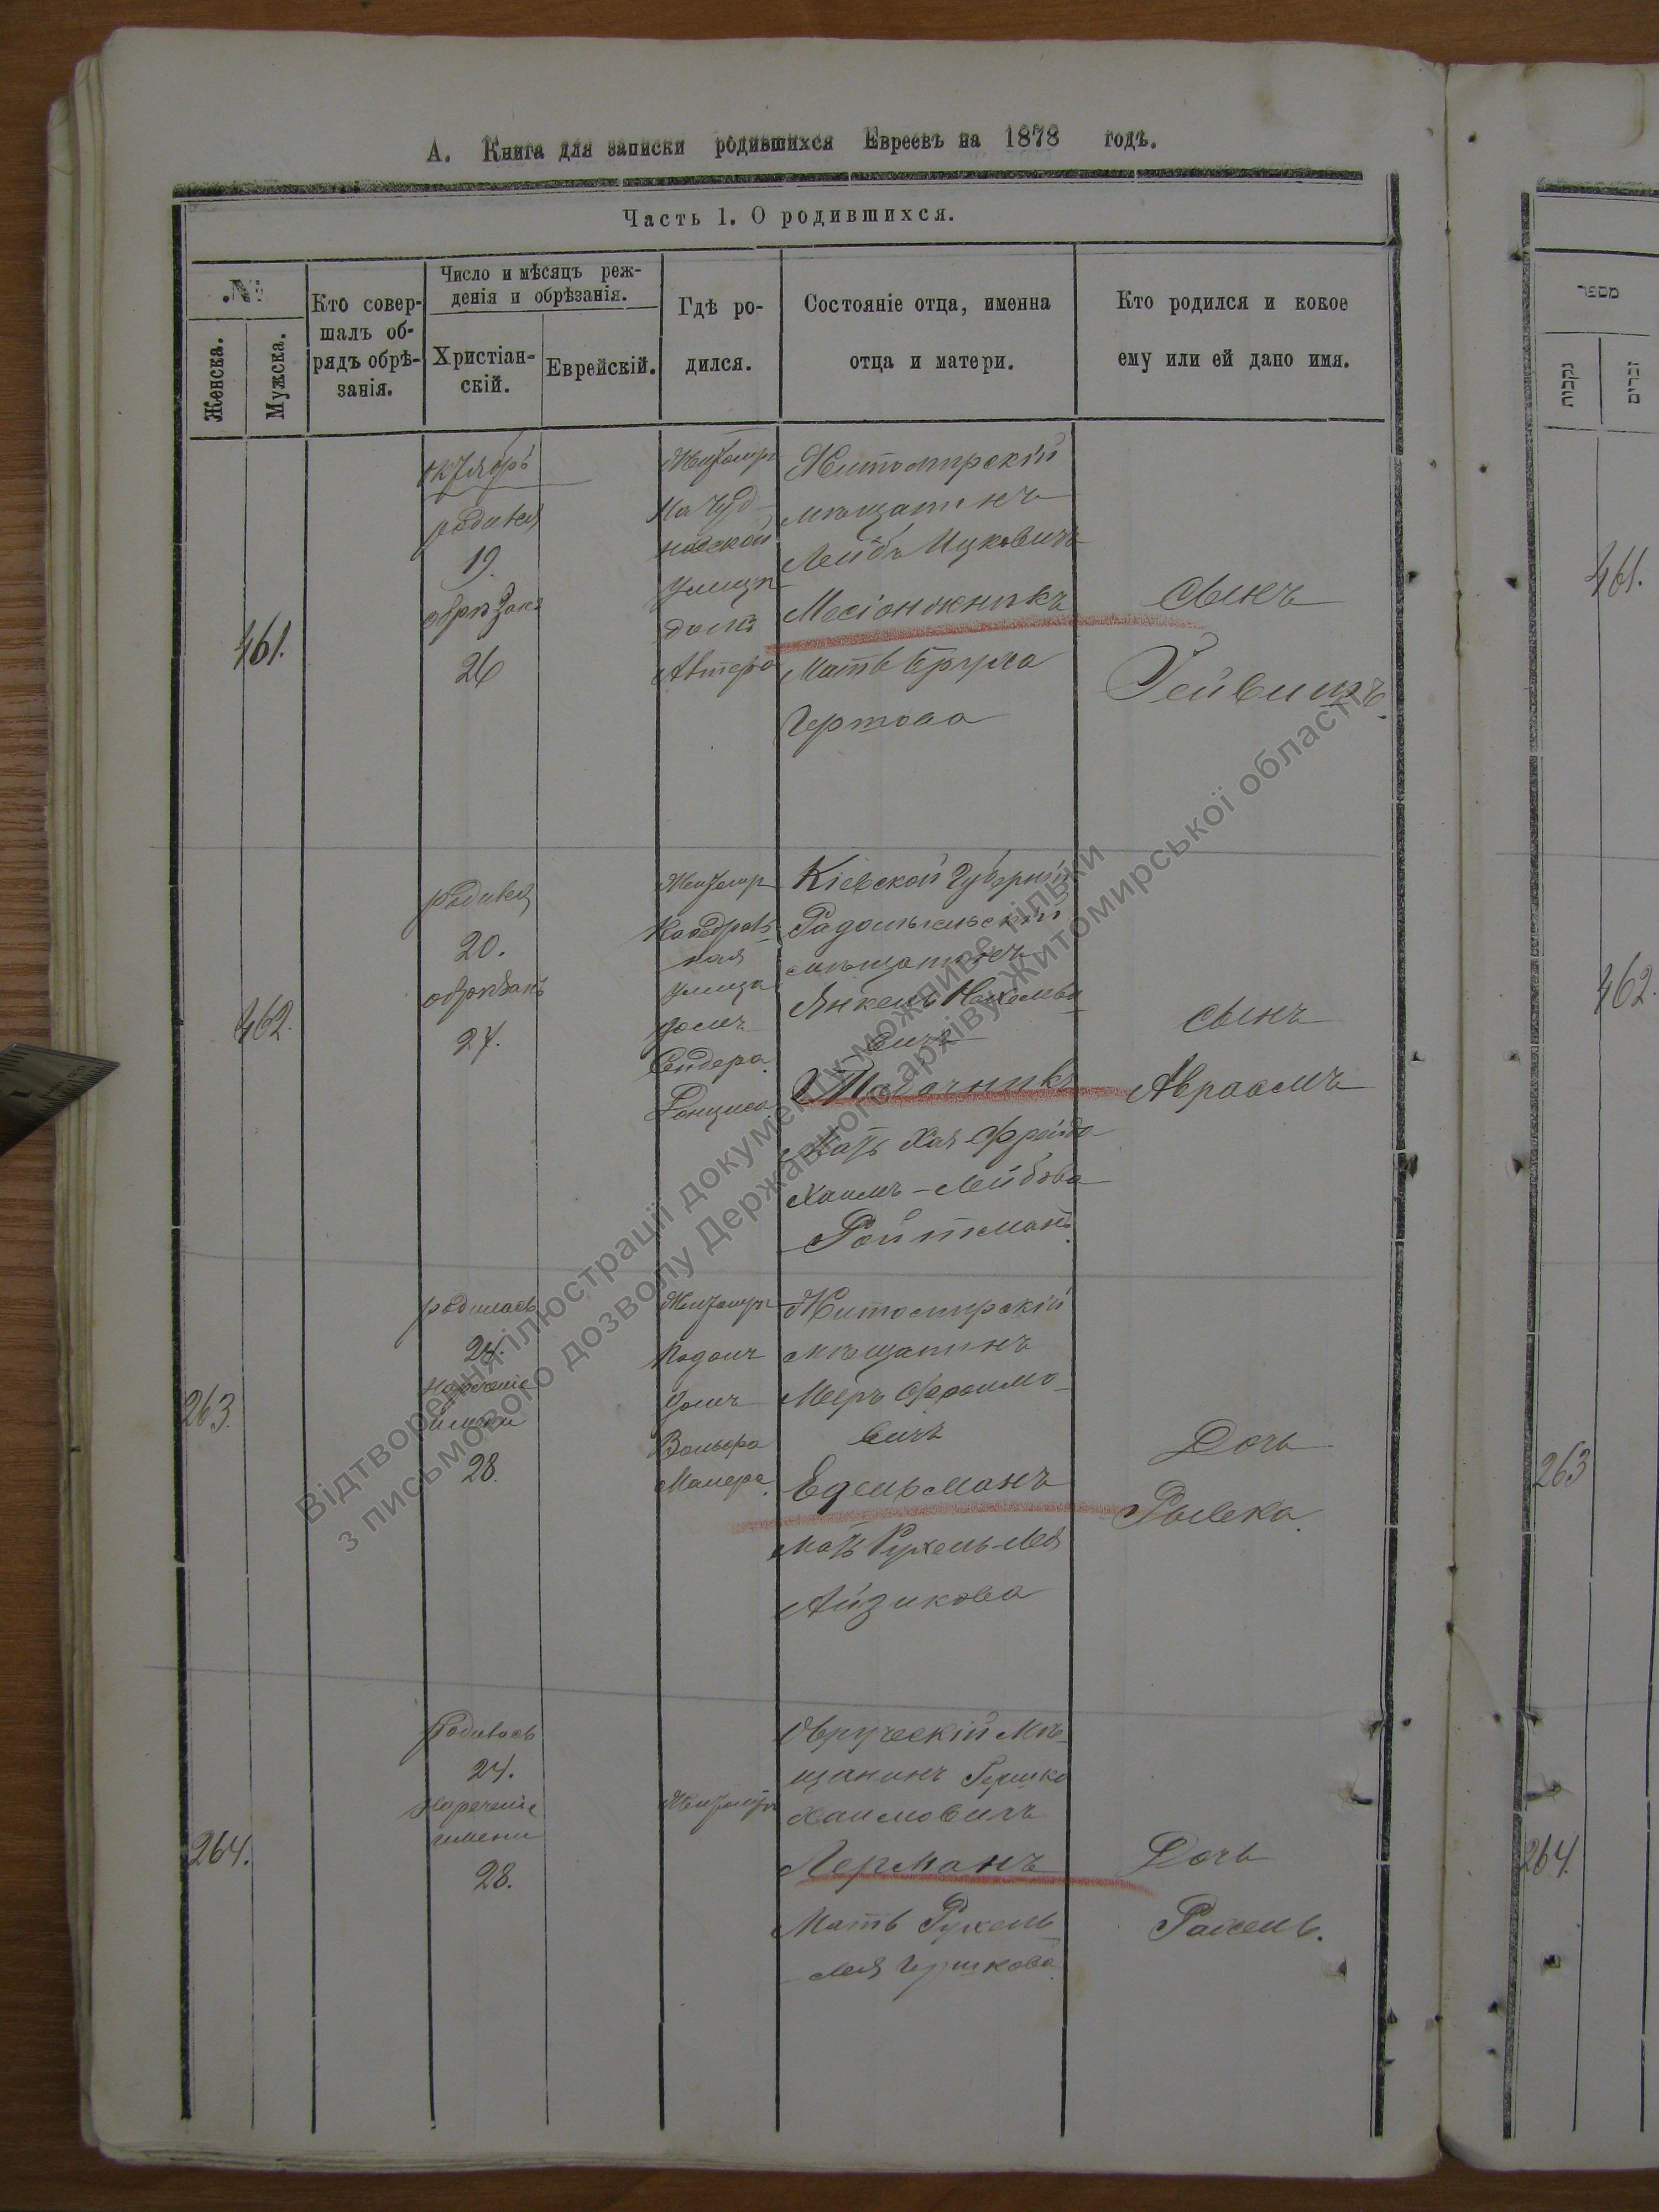 А. Книга для записки родившихся Евреевъ на 1878 годъ.
Часть 1. О родившихся.
№
Женска.
Мужска.
Кто совер-
шалъ об-
рядъ обрѣ-
занія.
Число и мѣсяцъ реж-
денія и обрѣзанія.
Христіан-
скій.
Еврейскій.
Гдѣ ро-
дился.
Состояніе отца, именна
отца и матери.
Кто родился и кокое
ему или ей дано имя.
461.
октябрь
родився
19.
обрѣзанъ
26
Житомиръ
На Чуд-
новской
улицѣ
домъ
Житомирскій
мѣщанинъ
Лейбъ Ицковичъ
Мать
сынъ
462.
родився
20.
обрѣзанъ
27.
Житомир
Кафедраль-
ная
улица
домъ
Сендера
Кіевской Губерніи
Радомысльскій
мѣщанинъ
Янкель
вичъ
Мать Хая-Фрейда
Хаимъ-Лейбова
Ройтманъ.
сынъ
Авраамъ
263.
родилась
24.
Нареченіе
имени
28.
Житомиръ
Подолъ
домъ
Житомирскій
мѣщанинъ
Мееръ
вичъ
Едельманъ
мать Рухель-Лея
Айзикова
Дочь
Рывка.
264.
родилась
24.
Нареченіе
имени
28.
Житомиръ
Овручскій Мѣ-
щанинъ Гершко
Хаимовичъ
Лерманъ
Мать Рухель
Лея Гершкова
Дочь
Рахель.
מספר
נקבות
זכרים
461.
462.
263
264.
Відтворення ілюстрації документу можливе тільки
з письмового дозволу Державного архіву Житомирської області